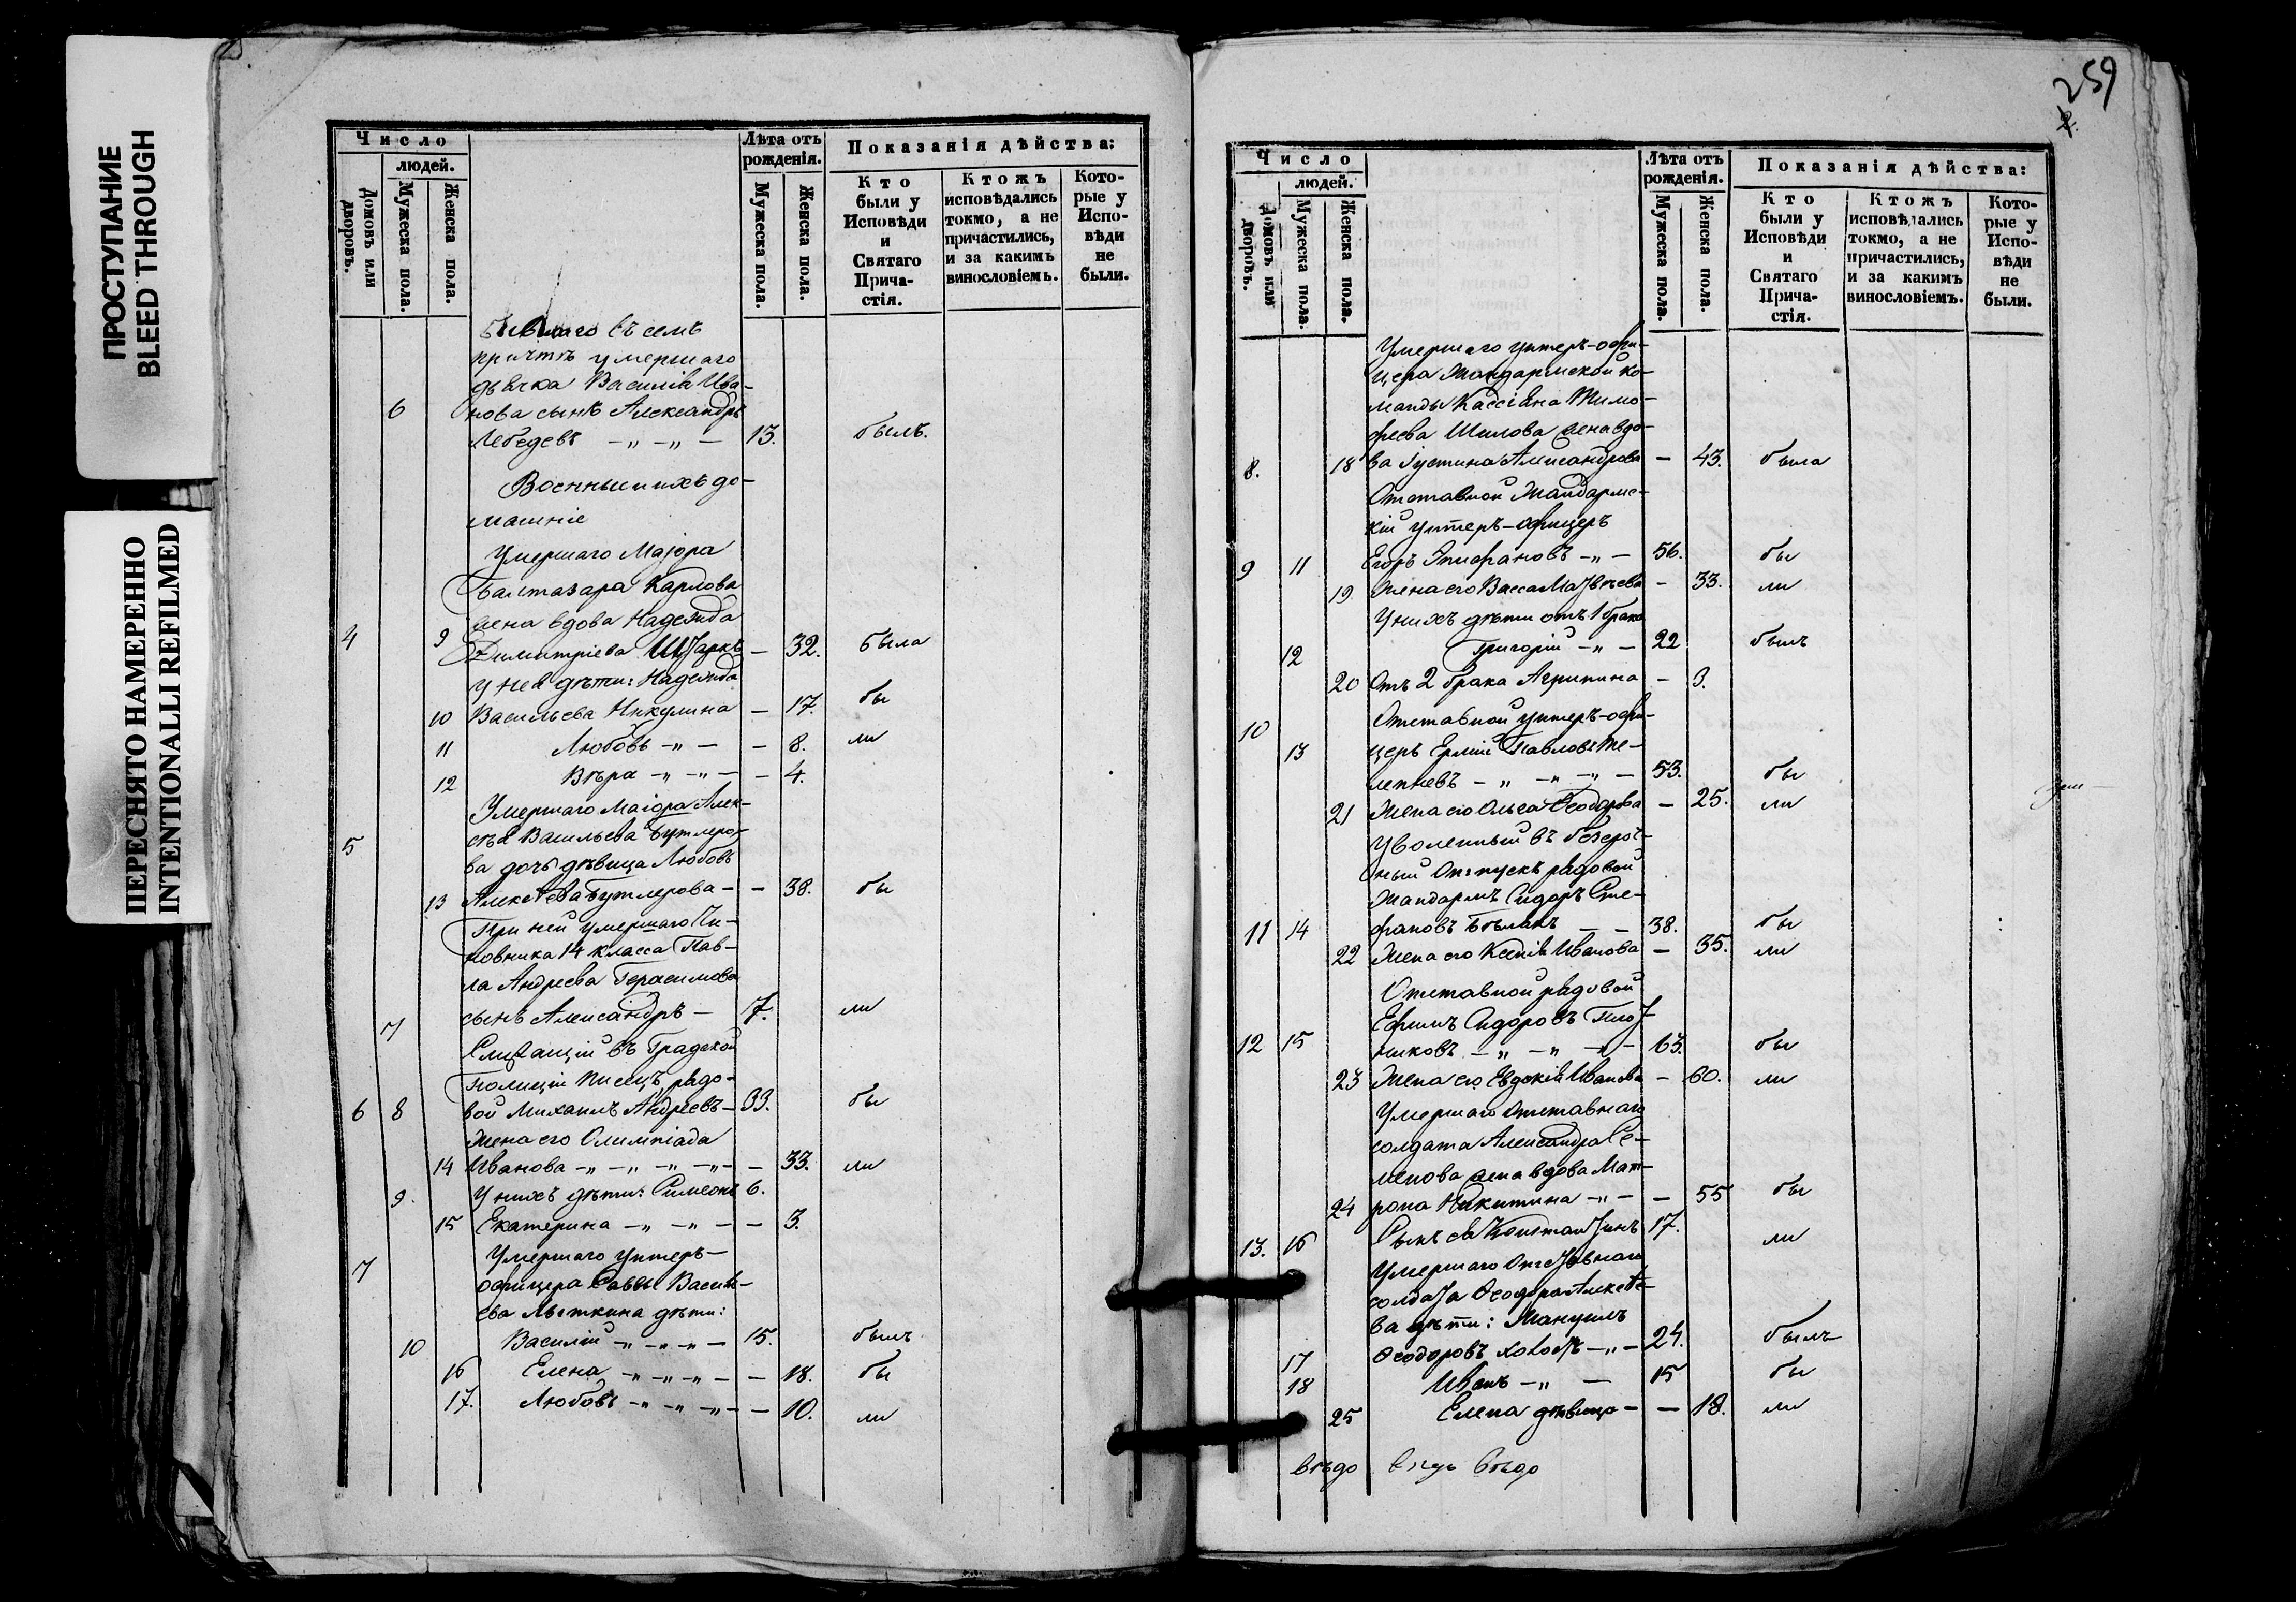 ПРОСТУПАНИЕ
BLEED THROUGH
ПЕРЕСНЯТО НАМЕРЕННО
INTENTIONALLI REFILMED
Число
людей.
Домовъ или дворовъ.
Мужеска пола.
Женска пола.
Лѣта отъ рожденія.
Мужеска пола.
Женска пола.
Показанія дѣйства:
Кто были у Исповѣди и Святаго Прича-стія.
Ктожъ исповѣдались токмо, а не причастились, и за какимъ винословіемъ.
Кото-рые у Испо-вѣди не были.
Бывшаго въ семъ
причтѣ умершаго
дьячка Василія Ива-
6 нова сынъ Александръ
Лебедевъ — „ — „ — 13. былъ.
Военные и ихъ до-
машніе
Умершаго Маіора
Балтазара Карлова
жена вдова Надежда
4 9 Димитріева Штаркъ — 32. была
у нея дѣти: Надежда
10 Васильева Никулина — 17. бы
11 Любовь — „ — — 8. ли
12 Вѣра — „ — „ — — 4.
Умершаго Маіора Алек-
5 сѣя Васильева Бутлеро-
ва дочь дѣвица Любовь
13 Алексѣева Бутлерова — — 38. бы
При ней умершаго Чи-
новника 14 класса Пав-
ла Андреева Герасимова
7 сынъ Александръ — 17. ли
Служащій въ Градской
Полиціи писецъ, рядо-
6 8 вой Михаилъ Андреевъ — 33. бы
Жена его Олимпіада
14 Иванова — „ — „ — „ — „ — — 33. ли
9. У нихъ дѣти: Симеонъ 6.
15 Екатерина — „ — „ — — 3.
Умершаго унтеръ-
7 офицера Саввы Василь-
ева Лыткина дѣти:
10 Василій — „ — „ — 15. былъ
16 Елена — „ — „ — „ — — 18. бы
17. Любовь — „ — „ — „ — — 10. ли
259
2.
Число
людей.
Домовъ или дворовъ.
Мужеска пола.
Женска пола.
Лѣта отъ рожденія.
Мужеска пола.
Женска пола.
Показанія дѣйства:
Кто были у Исповѣди и Святаго Прича-стія.
Ктожъ исповѣдались токмо, а не причастились, и за какимъ винословіемъ.
Кото-рые у Испо-вѣди не были.
Умершаго унтеръ-офи-
цера Жандармской ко-
манды Кассіана Тимо-
феева Шилова жена вдо-
8. 18 ва Іустина Александрова — 43. была
Отставной Жандармс-
кій унтеръ-офицеръ
9 11 Егоръ Епифановъ — „ — 56. бы
19 Жена его Васса Матвѣева — 33. ли
У нихъ дѣти отъ 1 брака
12 Григорій — „ — 22 былъ
20 Отъ 2 брака Агрипина — 3.
10 Отставной унтеръ-офи-
13 церъ Ермій Павловъ Те-
лепневъ — „ — „ — „ — 53. бы
21 Жена его Ольга Ѳеодорова — 25. ли
Уволенный въ безсроч-
ный Отпускъ рядовой
Жандармъ Сидоръ Сте-
11 14 фановъ — — 38. бы
22 Жена его Ксенія Иванова — 35. ли
Отставной рядовой
Ефимъ Сидоровъ
12 15 никовъ — „ — „ — „ — 63. бы
23 Жена его Евдокія Иванова — 60. ли
Умершаго Отставнаго
солдата Александра Се-
менова жена вдова Мат-
24 рона Никитина — „ — — 55 бы
13. 16 Сынъ ея Константинъ 17. ли
Умершаго Отставнаго
солдата Ѳеодора Алексѣе-
ва дѣти: Мануилъ
17 Ѳеодоровъ холостъ — „ — 24. былъ
18 Иванъ — „ — 15 бы
25 Елена дѣвица — — 18. ли